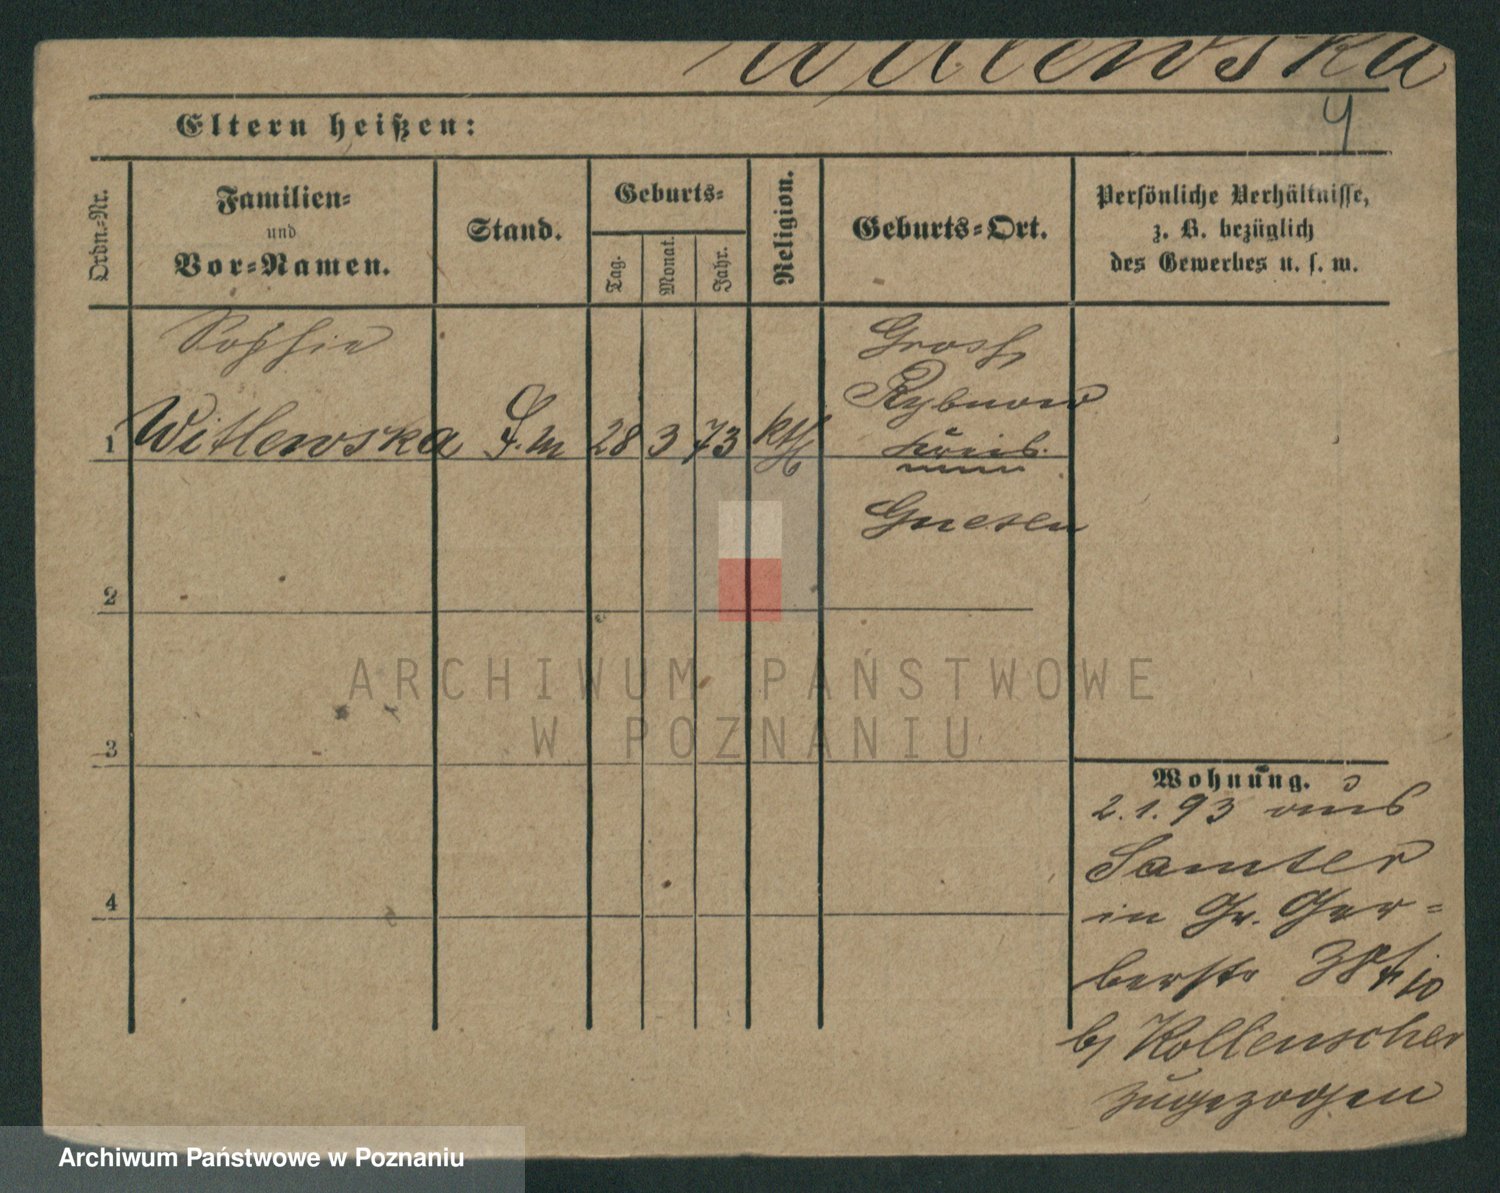 Witlewska
4
Eltern heißen:
Ordn.-Nr.
Familien-
und
Vor-Namen.
Stand.
Geburts-
Tag.
Monat.
Jahr.
Religion.
Geburts-Ort.
Persönliche Verhältnisse,
z. B. bezüglich
des Gewerbes u. s. w.
Sophie
Grosh
Rybnow
1 Witlewska 28 3 73 kth Kreis
Gnesen
2
3
4
Wohnung.
2.1.93 aus
Samter
in Gr. Ger-
berstr 38
b/ Kollenscher
zugezogen
ARCHIWUM PAŃSTWOWE
W POZNANIU
Archiwum Państwowe w Poznaniu